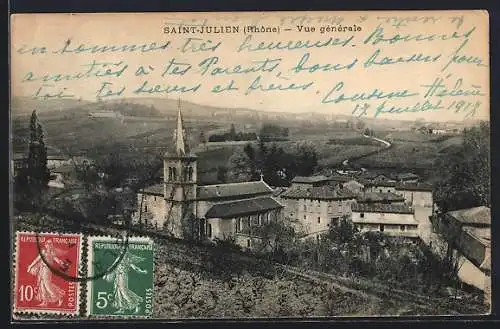 SAINT-JULIEN (Rhône) — Vue générale
en sommes très heureuses. Bonnes
amitiés à tes Parents, bons baisers pour
toi, tes sœurs et tes frères.
Cousine Hélène
17 juillet 191
RÉPUBLIQUE FRANÇAISE
10c
POSTES
RÉPUBLIQUE FRANÇAISE
5c
POSTES